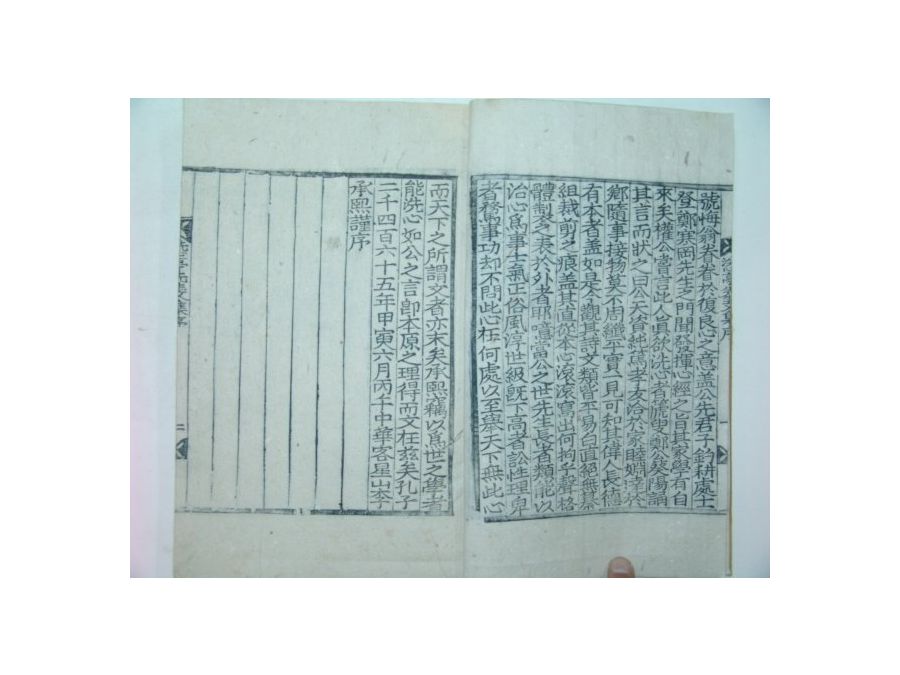 號梅翁眷眷於復良心之意盖公先君子釣耕處士
登鄭寒岡先生之門聞發揮心經之旨其家學有自
來矣權公嘗言此人眞欲洗心者 鄭公葵陽誦
其言而狀之曰公天資純 孝友洽於家睦婣 於
鄕隨事接物莫不周 平實一見可知其偉人長德
有本者盖如是今觀其詩文類皆平易白直絕無慕
組裁剪之痕盖其直從本心滚滚寫出何拘乎聲格
體製之末於外者 嘻當公之世先生長者類能以
治心爲事士氣正俗風淳世級旣下高者訟性理卑
者騖事功却不問此心在何處以至舉天下無此心
而天下之所謂文者亦末矣承熙竊以爲世之學者
能洗心如公之言卽本原之理得而文在玆矣孔子
二千四百六十五年甲寅六月丙午中華客星山李
承熙謹序
序
一
二